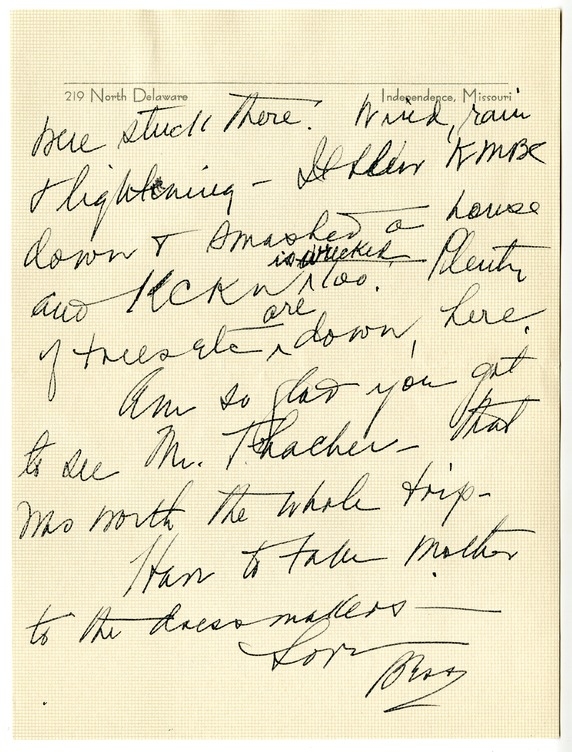 219 North Delaware Independence, Missouri
were stuck there. Wind, rain
& lightening – It blew KMBC
down & smashed a house
is wrecked
and KCKN ^ too. Plenty
are
of trees etc ^ down, here.
Am so glad you got
to see Mr. Thacher – that
was worth the whole trip –
Have to take Mother
to the dressmakers —
Love
Bess